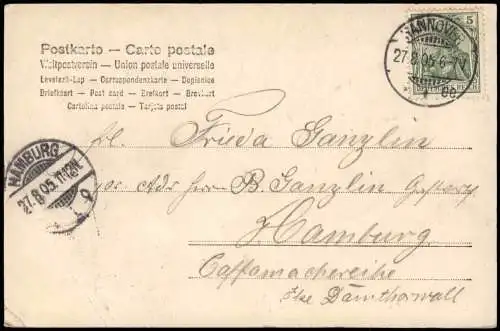 Postkarte — Carte postale
Weltpostverein — Union postale universelle
Levelező-Lap — Correspondenzkarte — Dopisnice
Briefkaart — Post card — Brevkort
Cartolina postale — Tarjeta postal
HANNOVER
27.8.05.6-7V.
5
HAMBURG
27.8.05.
Frl. Frieda Ganzlin
Adr Herrn B. Ganzlin
Hamburg
Caffamachereihe
Ecke Dammthorwall